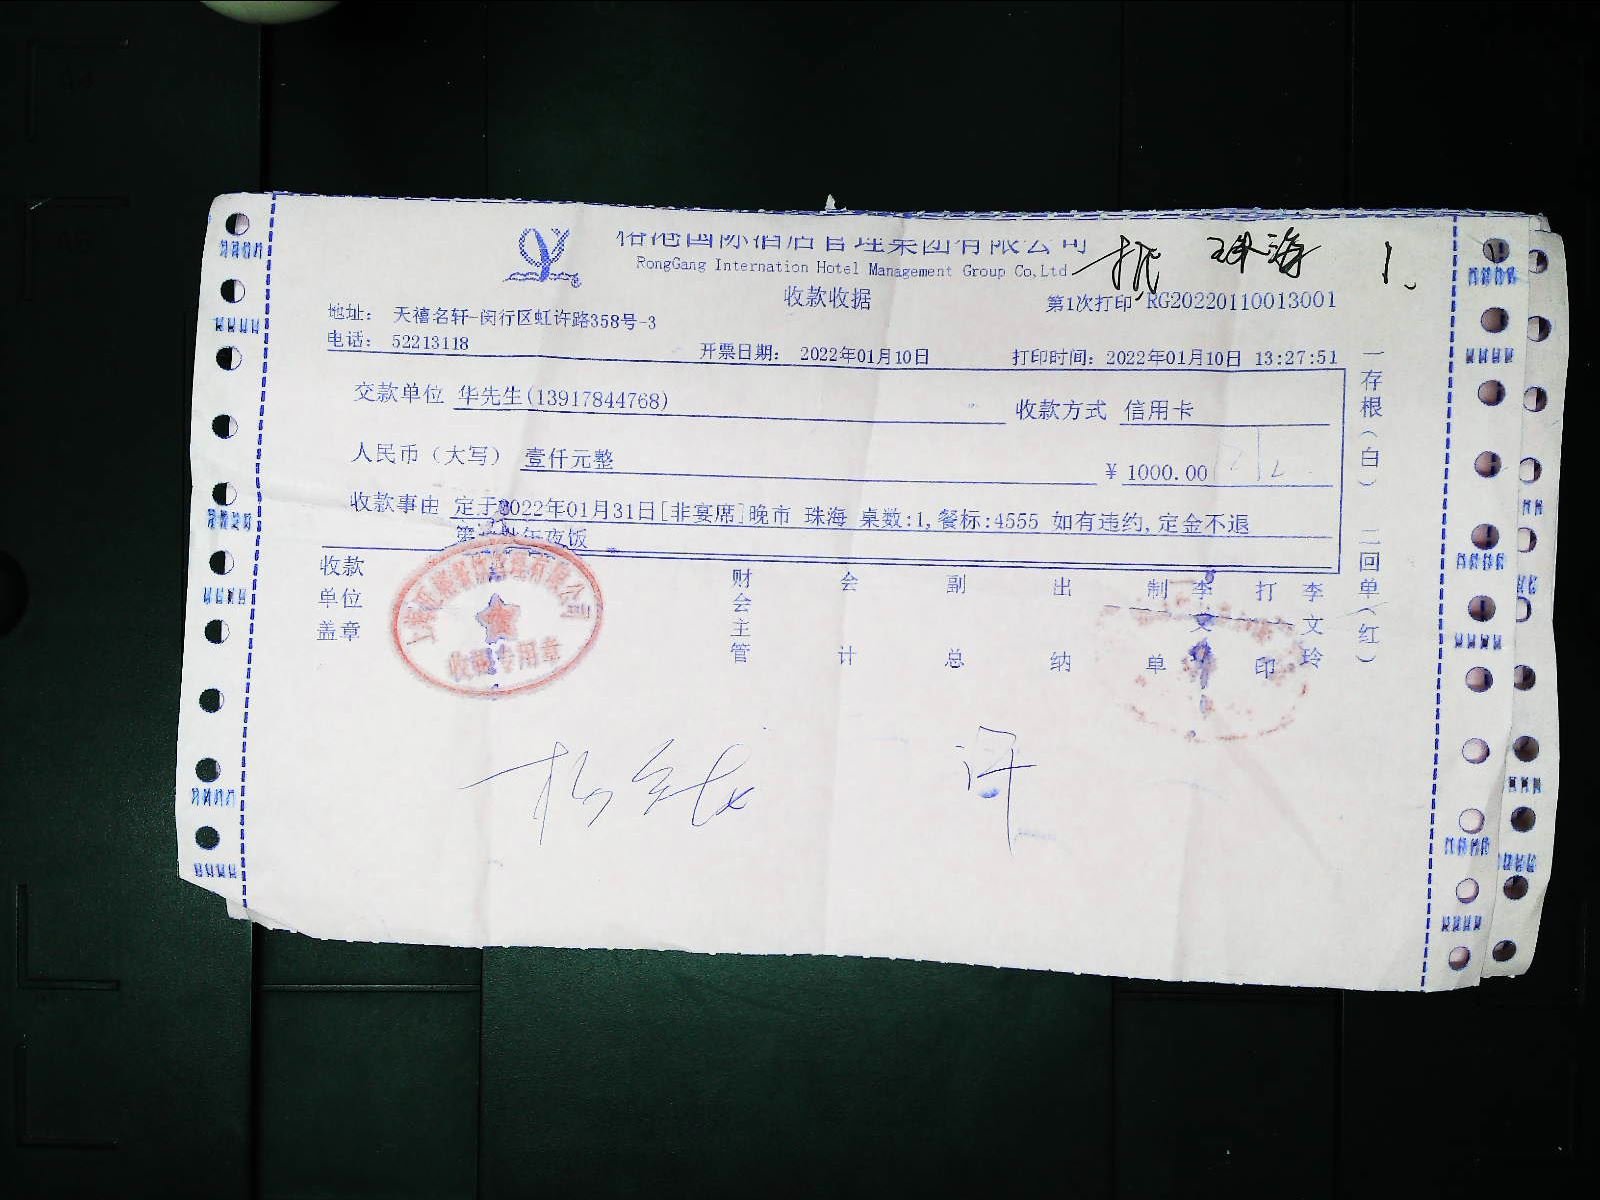 国际酒店管理集团有限公司
RongGang Internation Hotel Management Group Co.Ltd
珠海
收款收据
第1次打印 RG20220110013001
地址： 天禧名轩-闵行区虹许路358号-3
电话： 52213118
开票日期： 2022年01月10日
打印时间：2022年01月10日 13:27:51
交款单位 华先生(13917844768)
收款方式 信用卡
人民币（大写） 壹仟元整
¥ 1000.00
收款事由 定于2022年01月31日[非宴席]晚市 珠海 桌数:1,餐标:4555 如有违约,定金不退
年夜饭
收款单位盖章
财会主管
会计
副总
出纳
制单
李文
打印
李文玲
一存根（白） 二回单（红）
收据专用章